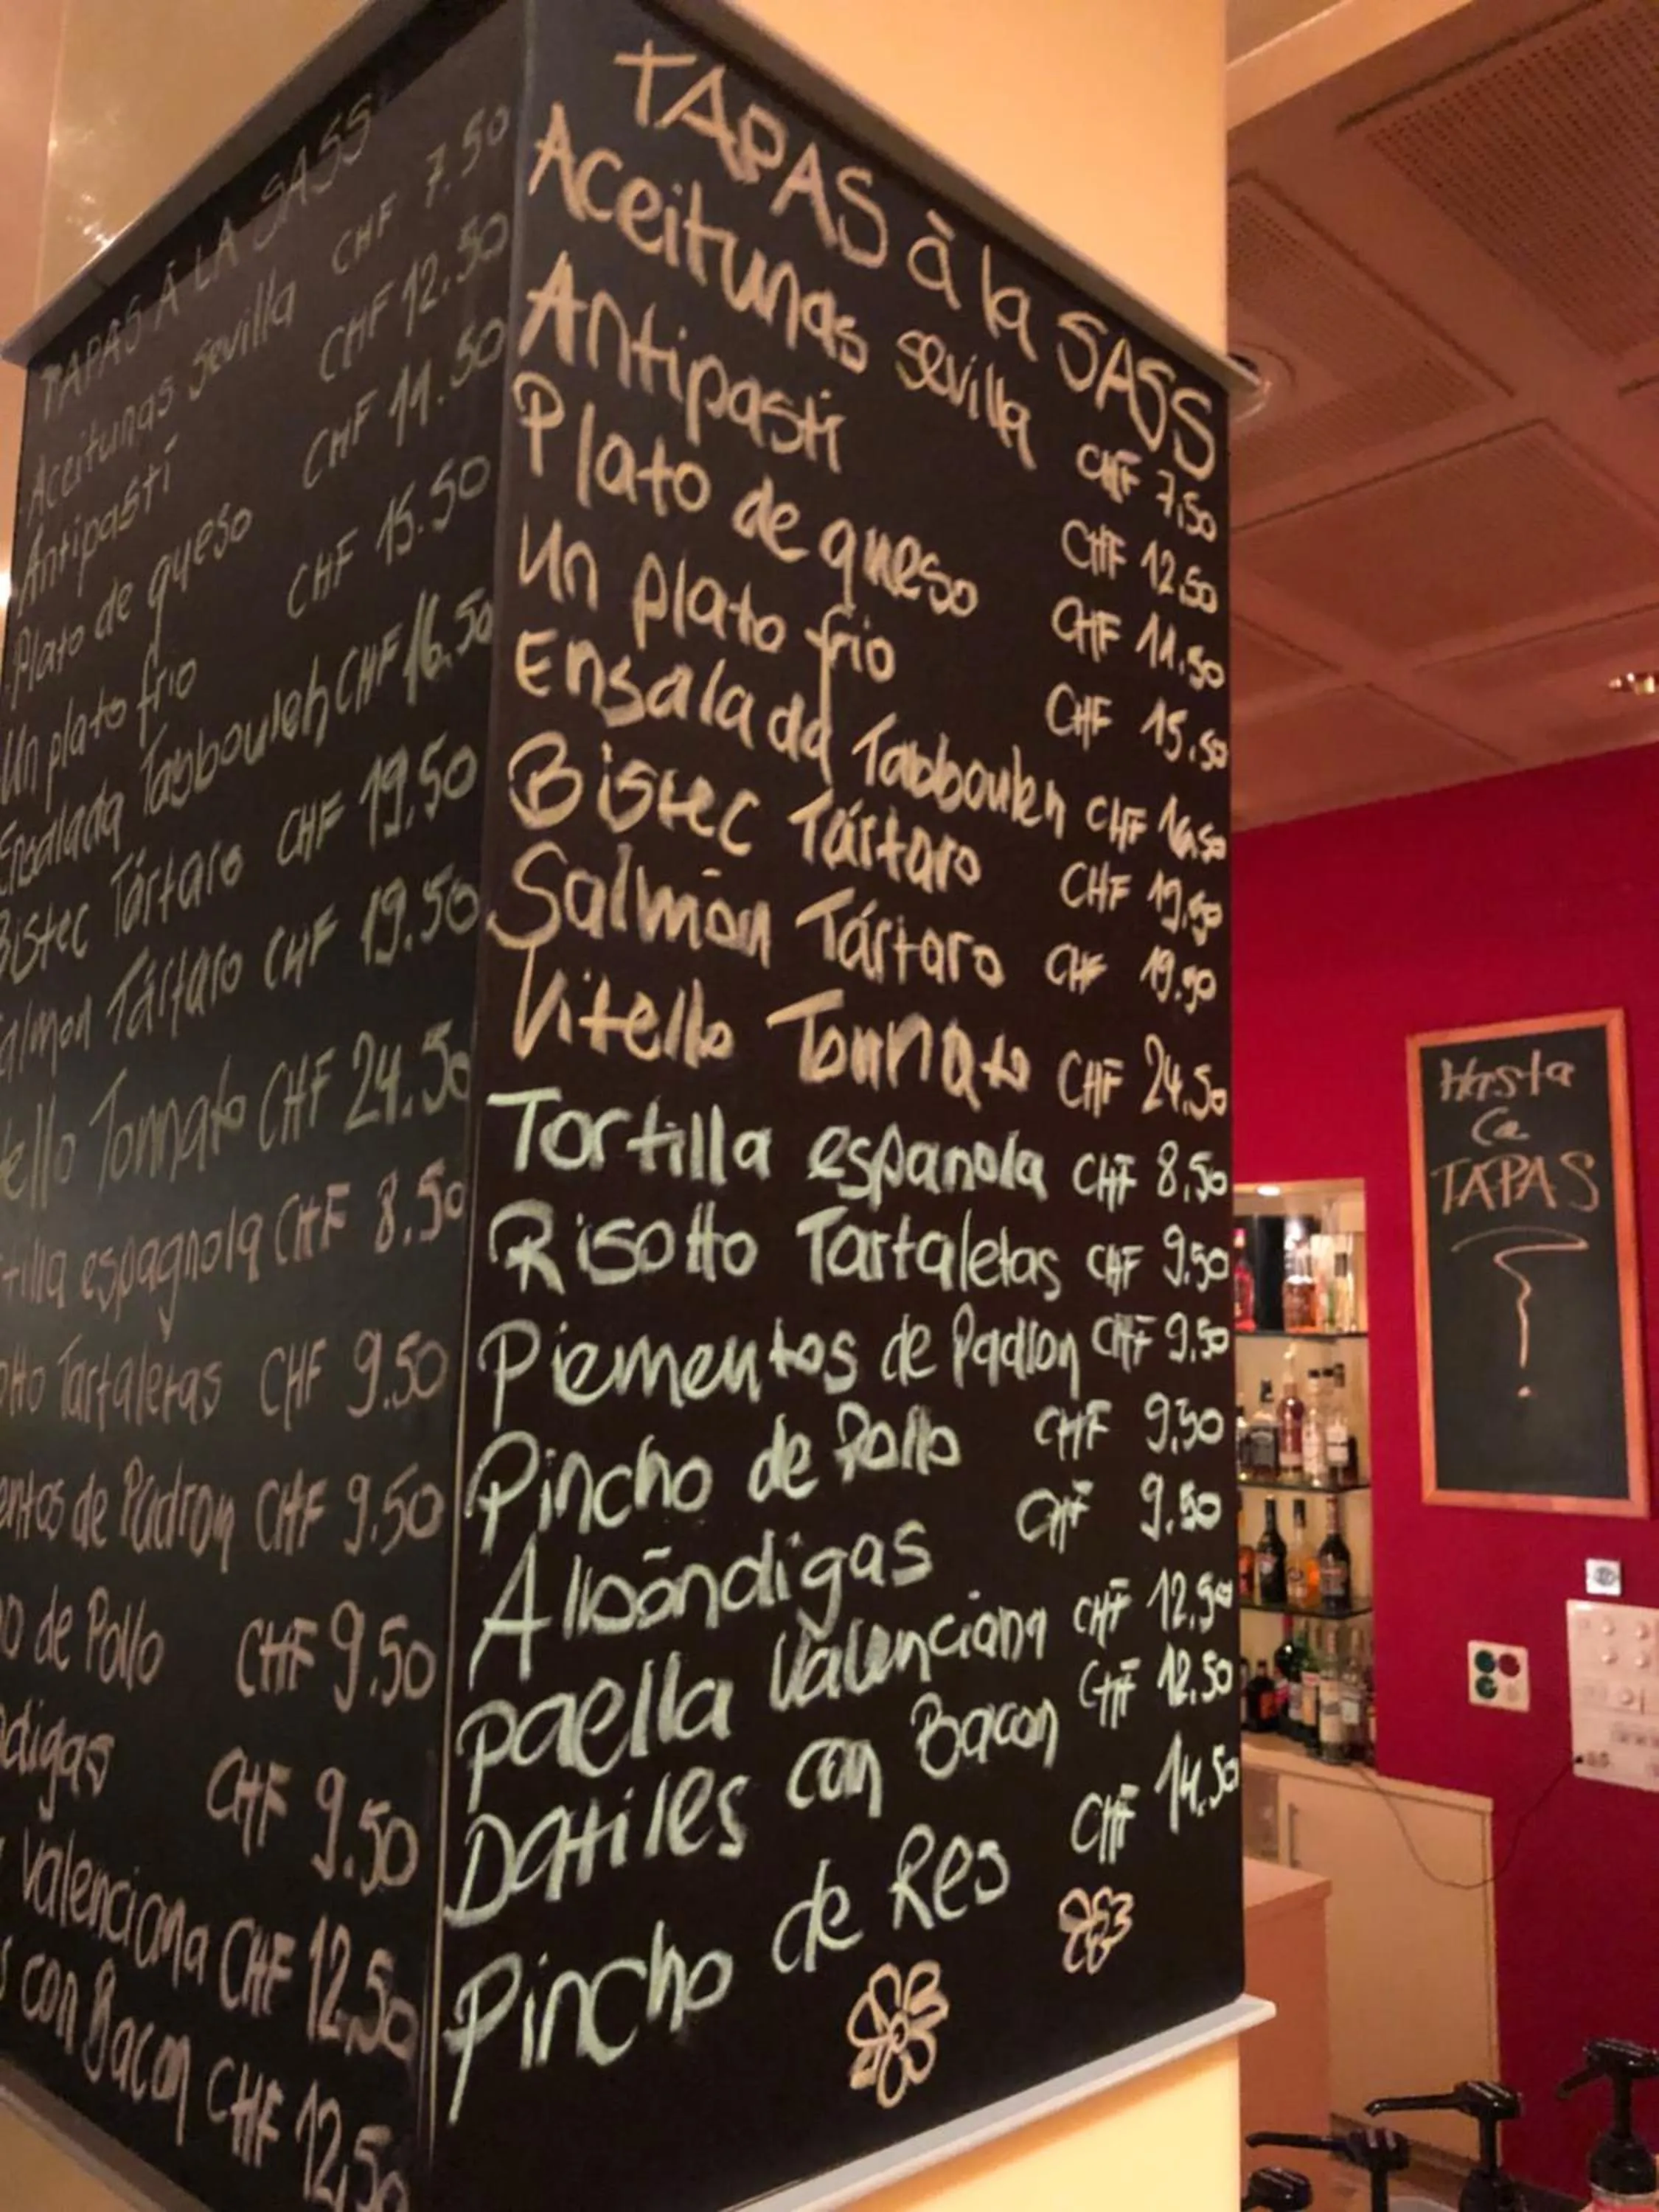 TAPAS À LA SASS
Aceitunas Sevilla CHF 7.50
Antipasti CHF 12.50
Plato de queso CHF 11.50
Un plato frio CHF 15.50
Ensalada Tabbouleh CHF 16.50
Bistec Tártaro CHF 19.50
almon Tártaro CHF 19.50
ello Tonnato CHF 24.50
tilla espagnola CHF 8.50
otto Tartaletas CHF 9.50
entos de Padron CHF 9.50
o de Pollo CHF 9.50
digas CHF 9.50
Valenciana CHF 12,50
s con Bacon CHF 12,50
TAPAS à la SASS
Aceitunas sevilla CHF 7,50
Antipasti CHF 12.50
Plato de queso CHF 11.50
Un plato frio CHF 15.50
Ensalada Tabbouleh CHF 16.50
Bistec Tártaro CHF 19.50
Salmón Tártaro CHF 19.50
Vitello Tonnato CHF 24.50
Tortilla espanola CHF 8,50
Risotto Tartaletas CHF 9.50
Piementos de Padron CHF 9.50
Pincho de Pollo CHF 9.50
Albóndigas CHF 9.50
paella Valenciana CHF 12.50
Datiles con Bacon CHF 12.50
Pincho de Res CHF 14.50
Hasta
La
TAPAS
?